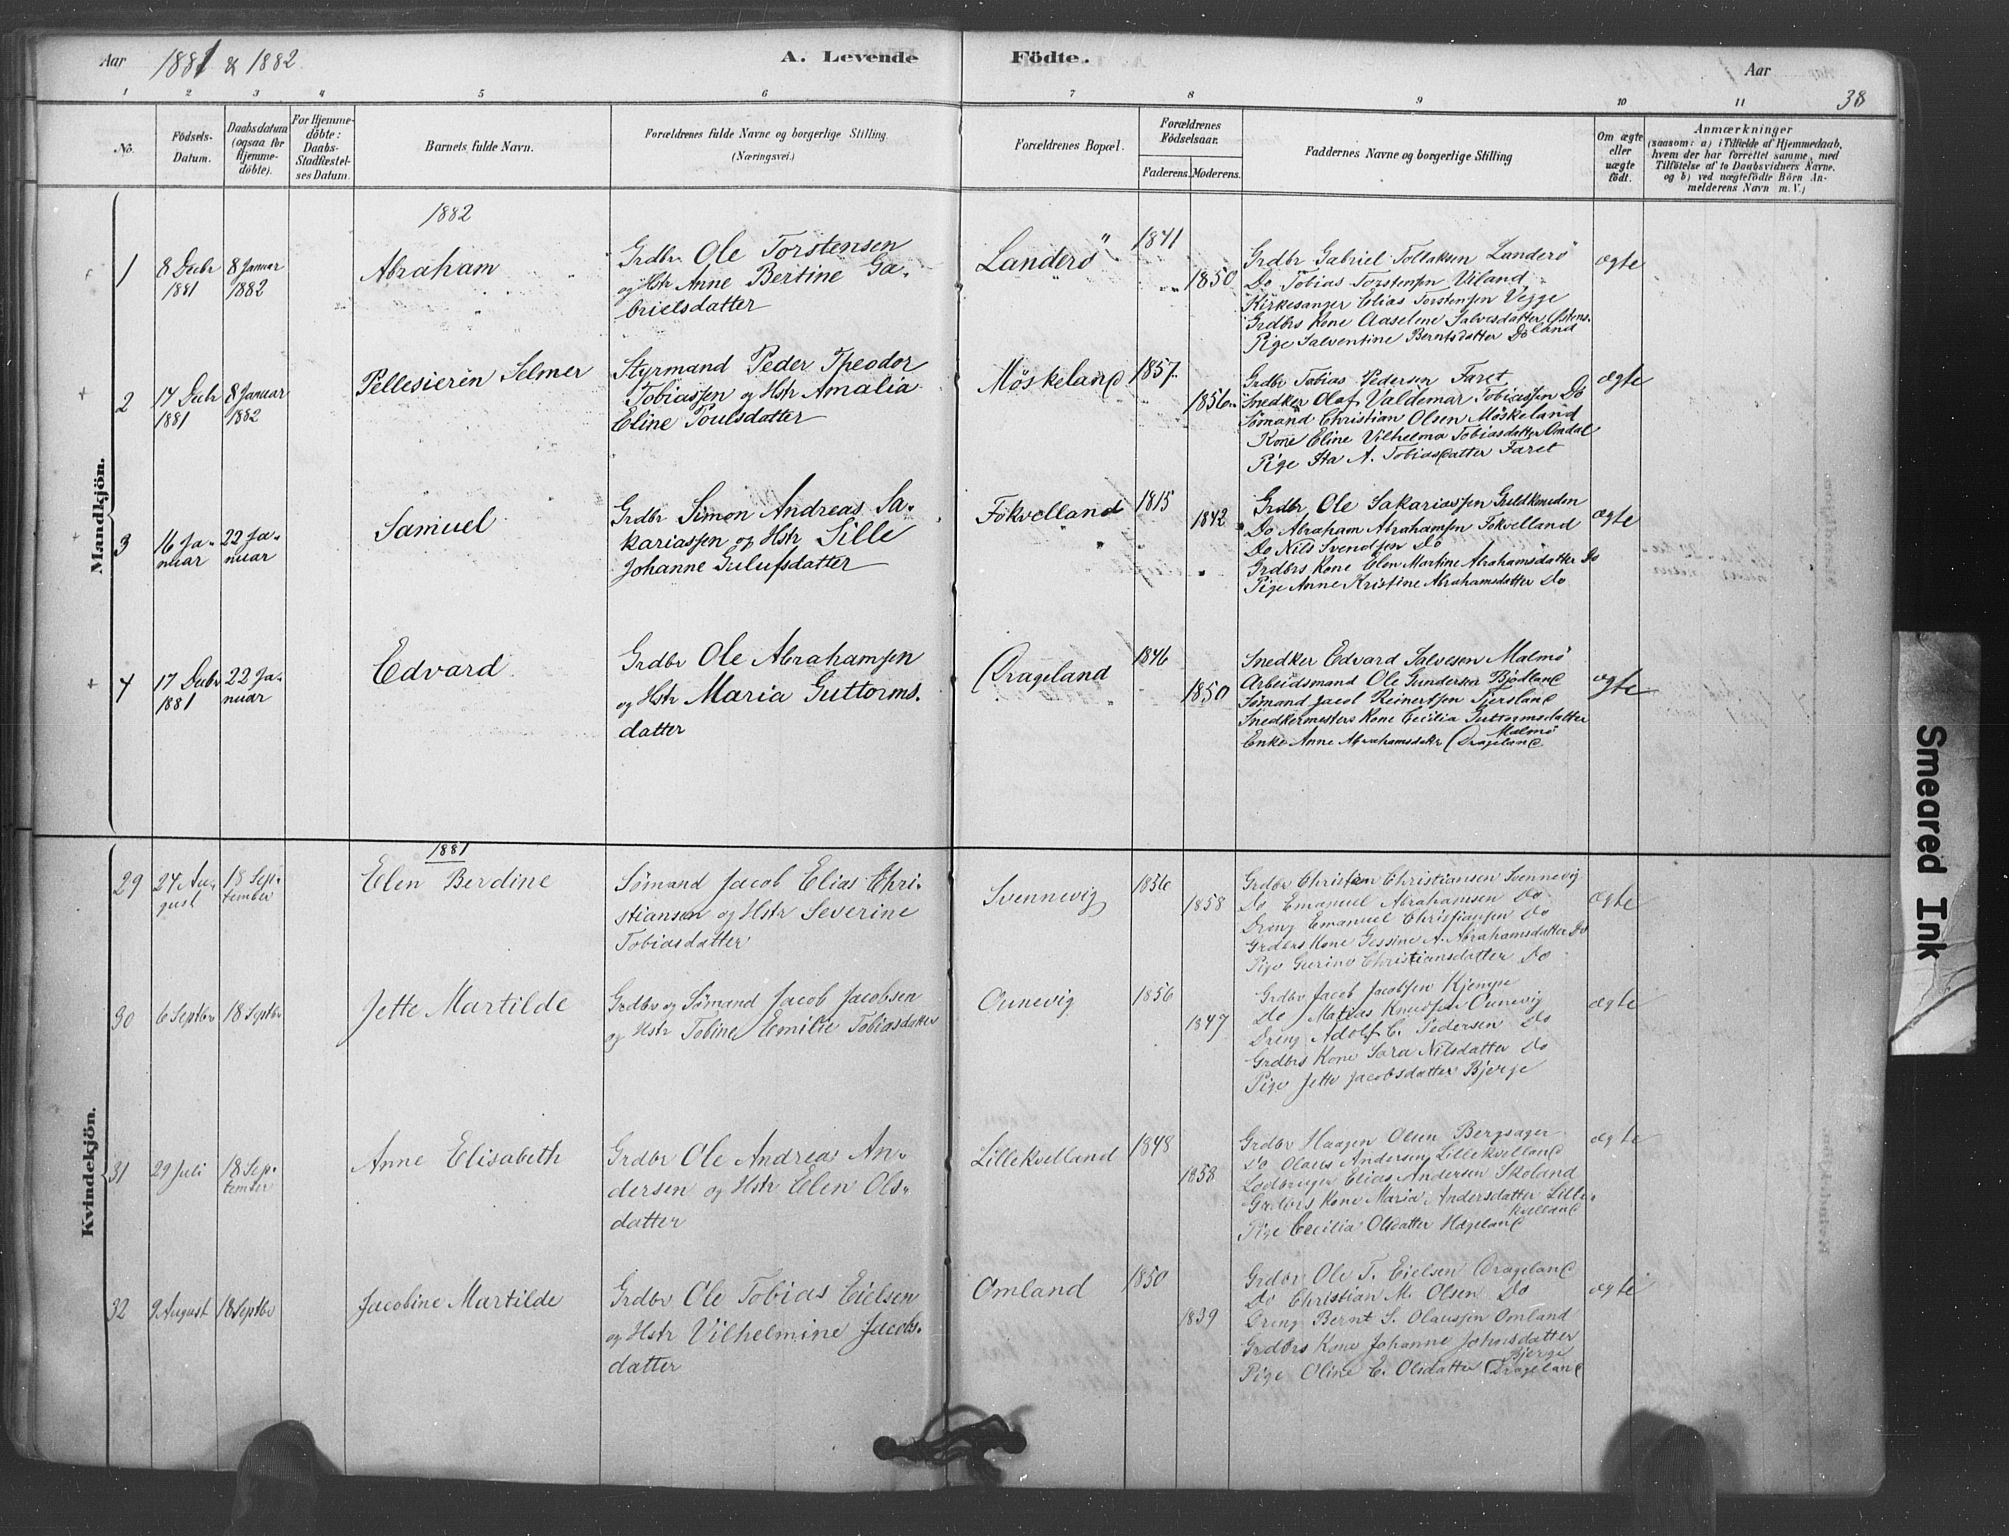 Aar 1881 & 1882 A. Levende Födte. Aar
1 2 3 4 5 6 7 8 9 10 11 38
No. Födsels-Datum. Daabsdatum (ogsaa for Hjemme-döbte). For Hjemme-döbte: Daabs-Stadfæstel-ses Datum. Barnets fulde Navn. Forældrenes fulde Navne og borgerlige Stilling (Næringsvei.) Forældrenes Bopæl. Forældrenes Födselsaar. Faderens. Moderens. Faddernes Navne og borgerlige Stilling Om ægte eller uægte födt. Anmærkninger (saasom: a) i Tilfælde af Hjemmedaab, hvem der har forrettet samme, med Tilföielse af to Daabsvidners Navne, og b) ved uægtefödte Börn An-melderens Navn m. V.)
Mandkjön.
1882
1 8 Decbr 1881 8 Januar 1882
Abraham
Grdbr Ole Torstensen
og Hstr Anne Bertine Ga-
brielsdatter
Landerö 1841 1850
Grdbr Gabriel Tollaksen Landerö
Do Tobias Torstensen Uiland
Kirkesanger Elias Torstensen Vegge
Grdbrs Kone Aaselene Salvesdatter Ostens-
land
Pige Salventine Berntsdatter Do
ægte
2 14 Decbr 1881 8 Januar 1882
Pellesieren Selmer
Styrmand Peder Theodor
Tobiassen og Hstr Amalia
Eline Poulsdatter
Möskeland 1857 1856
Grdbr Tobias Pedersen Faret
Snedker Olaf Valdemar Tobiassen Do
Sømand Christian Olsen Möskeland
Kone Eline Vilhelma Tobiasdatter Omdal
Pige Ida A. Tobiasdatter Faret
ægte
3 16 Ja-nuar 22 Ja-nuar
Samuel
Grdbr Simon Andreas Sa-
kariassen og Hstr Sille
Johanne Gulufsdatter
Fokvelland 1815 1842
Grdbr Ole Sakariassen Guldknuden
Do Abraham Abrahamsen Fokvelland
Do Nils Svendsen Do
Grdbrs Kone Elen Martine Abrahamsdatter Do
Pige Anne Kristine Abrahamsdatter Do
ægte
4 17 Decbr 1881 22 Ja-nuar
Edvard
Grdbr Ole Abrahamsen
og Hstr Maria Guttorms-
datter
Drageland 1846 1850
Snedker Edvard Salvesen Malmö
Arbeidsmand Ole Gundersen Bjodland
Sømand Jacob Reinertsen Tjersland
Snedkermesters Kone Cecilia Guttormsdatter
Malmö
Enke Anne Abrahamsdatter Drageland
ægte
Kvindekjön.
1881
29 24 Au-gust 18 Sep-tember
Elen Berdine
Sømand Jacob Elias Chri-
stiansen og Hstr Severine
Tobiasdatter
Svennevig 1856 1858
Grdbr Christen Christiansen Svennevig
Do Emanuel Abrahamsen Do
Dreng Emanuel Christiansen Do
Grdbrs Kone Gessine A. Abrahamsdatter Do
Pige Gurine Christiansdatter Do
ægte
30 6 Septbr 18 Septbr
Jette Martilde
Grdbr og Sømand Jacob Jacobsen
og Hstr Tobine Emilie Tobiasdatter
Ounevig 1856 1847
Grdbr Jacob Jacobsen Kjempe
Do Matias Knudsen Ounevig
Dreng Adolf C. Pedersen Do
Grdbrs Kone Sara Nilsdatter Do
Pige Jette Jacobsdatter Bjerge
ægte
31 29 Juli 18 Sep-tember
Anne Elisabeth
Grdbr Ole Andreas An-
dersen og Hstr Elen Ols-
datter
Lillekvelland 1848 1858
Grdbr Haagen Olsen Bergsager
Do Olaus Andersen Lillekvelland
Elias Andersen Skoland
Grdbrs Kone Maria Andersdatter Lille-
kvelland
Pige Cecilia Olsdatter Hægeland
ægte
32 9 August 18 Septbr
Jacobine Martilde
Grdbr Ole Tobias Eielsen
og Hstr Vilhelmine Jacobs-
datter
Omland 1850 1839
Grdbr Ole T. Eielsen Drageland
Do Christian M. Olsen Do
Dreng Bernt S. Olaussen Omland
Grdbrs Kone Johanne Johnsdatter
Bjerge
Pige Oline E. Olsdatter Drageland
ægte
Smeared Ink